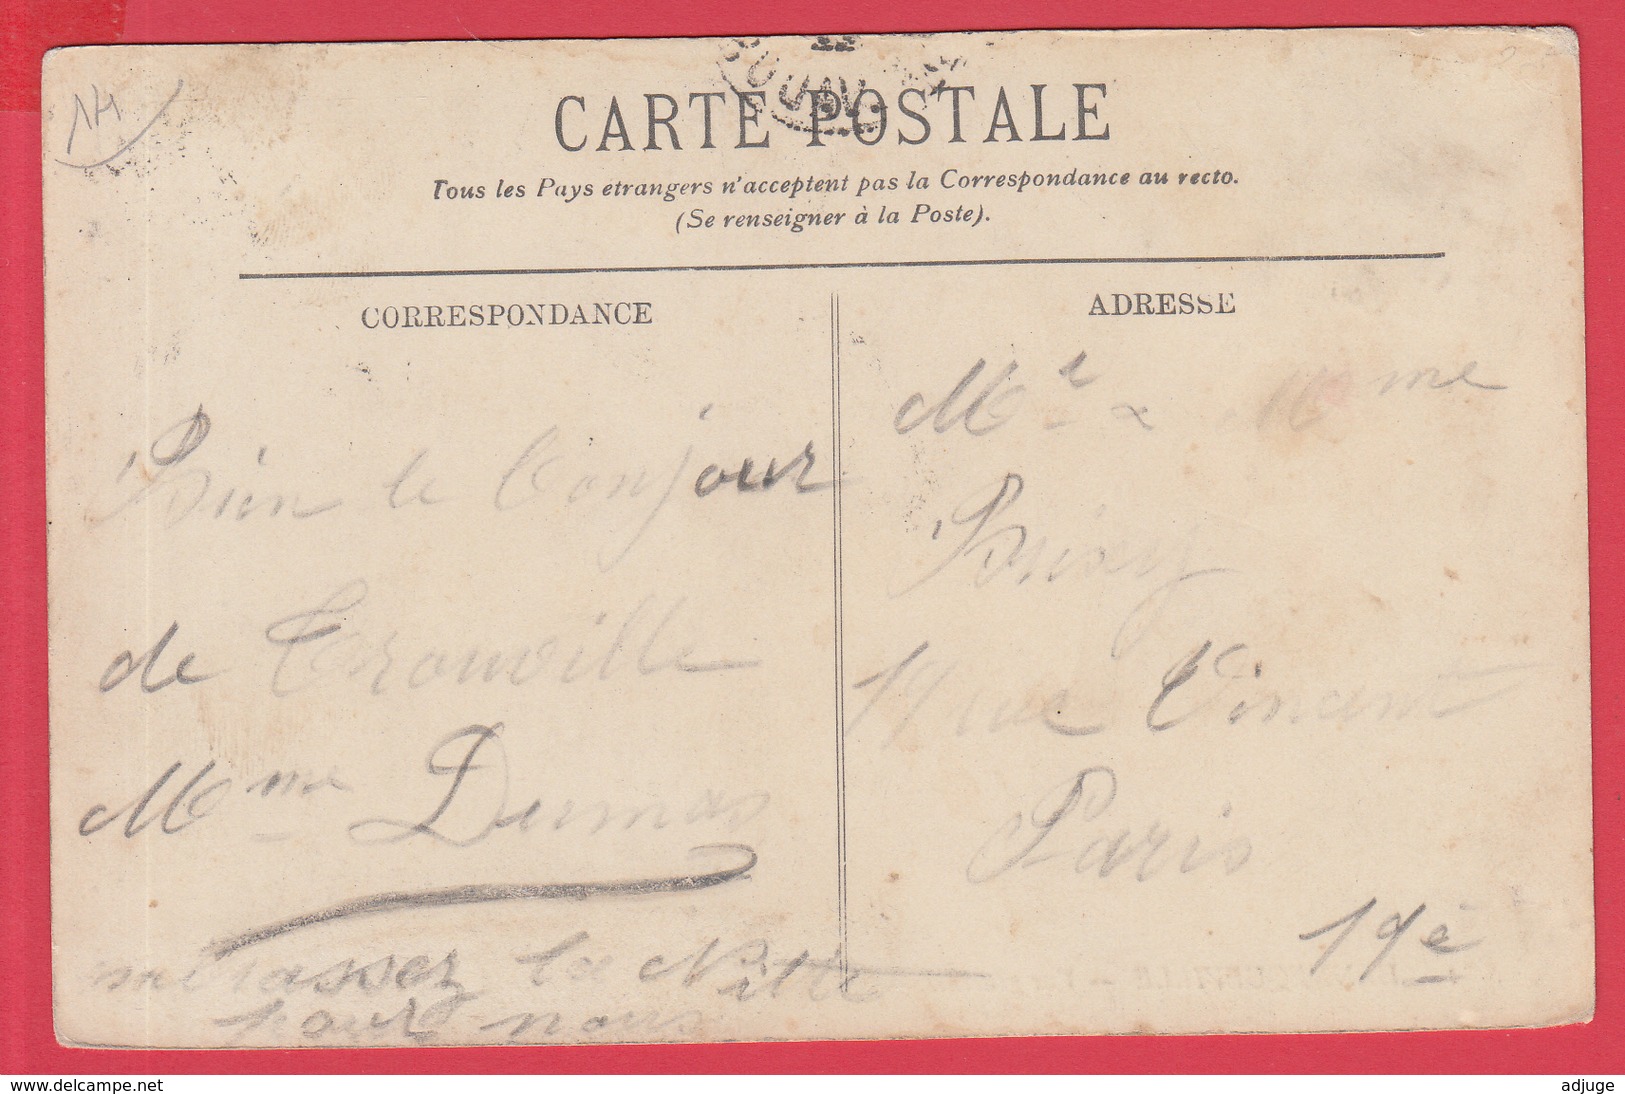 14
CARTE POSTALE
Tous les Pays etrangers n'acceptent pas la Correspondance au recto.
(Se renseigner à la Poste).
CORRESPONDANCE
Bien le bonjour
de Trouville
Mme Dumas
embrassez la Nitte
pour nous
ADRESSE
Mr & Mme
19 rue Vincent
Paris
19è
www.delcampe.net
adjuge